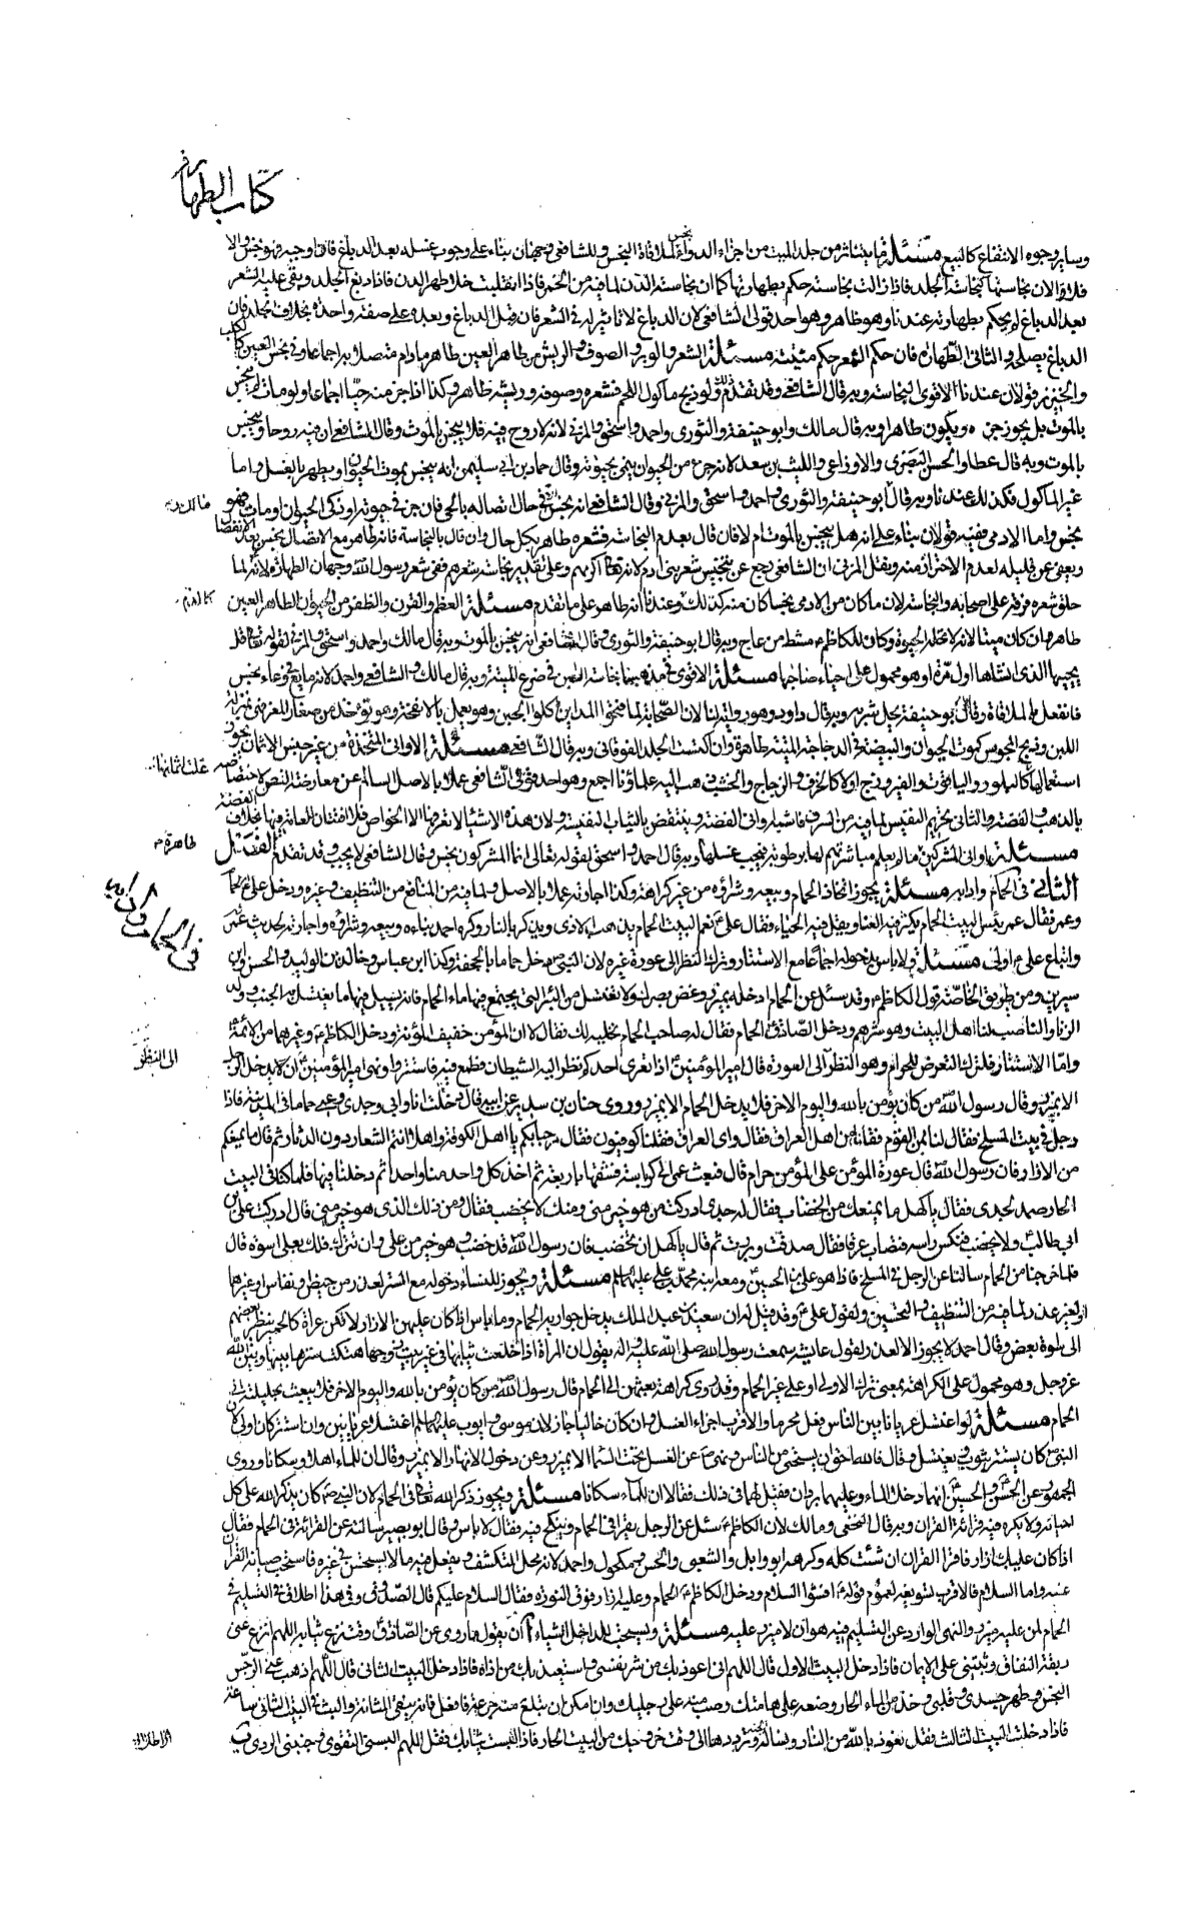 كتاب الطهارة
وساير وجوه الانتفاع كالبيع مسئلة ما يتناثر من جلد الميت من اجزاء الدواء نجس لملاقاة النجس وللشافعي وجهان بناء على وجوب غسله بعد الدباغ فان اوجبه فهو نجس والا
فلا الان نجاستها لنجاسة الجلد فاذا زالت نجاسته حكم بطهارتها كما ان نجاسة الدن لما فيه من الخمر فاذا انقلبت خلا طهر الدن فاذا دبغ الجلد وبقى عليه الشعر
بعد الدباغ لم يحكم بطهارته عندنا وهو ظاهر وهو احد قولى الشافعى لان الدباغ لا تاثير له في الشعر فان قبل الدباغ وبعده على صفة واحدة بخلاف الجلد فان
الدباغ يصلحه والثانى الطهارة فان حكم الشعر حكم منبته مسئلة الشعر والوبر والصوف والريش من طاهر العين طاهر ما دام متصلا به اجماعا وفي نجس العين كالكلب
والخنزير قولان عندنا الاقوى النجاسة وبه قال الشافعي وقد تقدم ذلك ولو ذبح ماكول اللحم فشعره وصوفه وريشه طاهر وكذا اذا جز منه حيا اجماعا ولو مات لم ينجس
بالموت بل يجوز جزه ويكون طاهرا وبه قال مالك وابو حنيفة والثورى واحمد واسحق والمزني لانه لا روح فيه فلا ينجس بالموت وقال الشافعي ان فيه روحا وينجس
بالموت وبه قال عطا والحسن البصرى والاوزاعي والليث بن سعد لانه جزء من الحيوان ينمى بحيوته وقال حماد بن ابى سليمن انه ينجس بموت الحيوان ويطهر بالغسل واما
غير الماكول فكذلك عندنا وبه قال ابو حنيفة والثورى واحمد واسحق والمزني وقال الشافعي انه نجس في حال اتصاله بالحى فان جز في حيوته او ذكى الحيوان او مات فهو
نجس واما الادمى ففيه قولان بناء على انه هل ينجس بالموت ام لا فان قال بعدم النجاسة فشعره طاهر بكل حال وان قال بالنجاسة فانه طاهر مع الاتصال نجس بعد الانفصال
ويعفى عن قليله لعدم الاحتراز منه ونقل المزنى ان الشافعي رجع عن تنجيس شعر بنى ادم لانه تعالى اكرمهم وعلى تقدير نجاسة شعرهم ففي شعر رسول الله ص وجهان الطهارة لانه لما
حلق شعره فرقه على اصحابه والنجاسة لان ما كان من الادمى نجسا كان منه كذلك وعندنا انه طاهر على ما تقدم مسئلة العظم والقرن والظفر من الحيوان الطاهر العين
طاهر وان كان ميتا لانه لا تحله الحيوة وكان للكاظم ع مشط من عاج وبه قال ابو حنيفة والثورى وقال الشافعى انه ينجس بالموت وبه قال مالك واحمد واسحق والمزنى لقوله تعالى قل
يحييها الذى انشاها اول مرة وهو محمول على احياء صاحبها مسئلة الاقوى في مذهبنا نجاسة اللبن في ضرع الميتة وبه قال مالك والشافعي واحمد لانه مايع في وعاء نجس
فانفعل بالملاقاة وقال ابو حنيفة يحل شربه وبه قال داود وهو رواية لنا لان الصحابة لما فتحوا المداين اكلوا الجبن وهو يعمل بالانفحة وهو تؤخذ من صغار المعز فهى بمنزلة
اللبن وذبح المجوس كموت الحيوان والبيضة في الدجاجة الميتة طاهرة وان اكتست الجلد الفوقانى وبه قال الشافعي مسئلة الاوانى المتخذة من غير جنس الاثمان يجوز
استعمالها كالبلور والياقوت والفيروزج او لا كالخزف والزجاج والخشب ذهب اليه علماؤنا اجمع وهو احد قولى الشافعى عملا بالاصل السالم عن معارضة النص لاختصاصه
بالذهب والفضة والثانى تحريم النفيس لما فيه من السرف فاشبه اوانى الفضة وينتقض بالثياب النفيسة ولان هذه الاشياء لا يعرفها الا الخواص فلا افتتان للعامة بها بخلاف الفضة
مسئلة اوانى المشركين ما لم يعلم مباشرتهم لها برطوبة فيجب غسلها وبه قال احمد واسحق لقوله تعالى انما المشركون نجس وقال الشافعي لا يجب وقد تقدم الفصل
الثاني في الحمام وادابه مسئلة يجوز اتخاذ الحمام وبيعه وشراؤه من غير كراهة وكذا اجارته عملا بالاصل ولما فيه من المنافع من التنظيف وغيره ودخل على ع الحمام
وعمر فقال عمر بئس البيت الحمام يكثر فيه العناء ويقل فيه الحياء فقال على ع نعم البيت الحمام يذهب الاذى ويذكر بالنار وكره احمد بناءه وبيعه وشراؤه واجارته لحديث عمر
واتباع على ع اولى مسئلة ولا باس بدخوله اجماعا مع الاستتار وترك النظر الى عورة غيره لان النبى ص دخل حماما بالجحفة وكذا ابن عباس وخالد بن الوليد والحسن وابن
سيرين ومن طريق الخاصة قول الكاظم ع وقد سئل عن الحمام ادخله بميزر وغض بصرك ولا تغتسل من البئر التى يجتمع فيها ماء الحمام فانه يسيل فيها ما يغتسل به الجنب وولد
الزنا والناصب لنا اهل البيت وهو شرهم ودخل الصادق ع الحمام فقال له صاحب الحمام نخليه لك فقال لا ان المؤمن خفيف المؤنة ودخل الكاظم ع وغيرهما من الائمة ع
واما الاستتار فلترك التعرض للحرام وهو النظر الى العورة قال امير المؤمنين ع اذا تعرى احدكم نظر اليه الشيطان فطمع فيه فاستتروا ونهى امير المؤمنين ع ان لا يدخل الرجل
الا بميزر وقال رسول الله ص من كان يؤمن بالله واليوم الاخر فلا يدخل الحمام الا بميزر وروى حنان بن سدير عن ابيه قال دخلت انا وابى وجدى وعمى حماما في المدينة فاذا
رجل في بيت المسلخ فقال لنا ممن القوم فقلنا من اهل العراق فقال واى العراق فقلنا كوفيون فقال مرحبا بكم يا اهل الكوفة واهلا انتم الشعار دون الدثار ثم قال ما يمنعكم
من الازار فان رسول الله ص قال عورة المؤمن على المؤمن حرام قال فبعث عمى الى كرباسة فشقها باربعة ثم اخذ كل واحد منا واحدا ثم دخلنا فيها فلما كنا في البيت
الحار صمد لجدى فقال يا كهل ما يمنعك من الخضاب فقال له جدى ادركت من هو خير منى ومنك لا يخضب فقال ومن ذلك الذى هو خير منى قال ادركت على بن
ابى طالب ع ولا يخضب فنكس راسه فتصاب عرقا فقال صدقت وبررت ثم قال يا كهل ان تخضب فان رسول الله ص قد خضب وهو خير من على وان تترك فلك بعلى اسوة قال
فلما خرجنا من الحمام سالنا عن الرجل في المسلخ فاذا هو على بن الحسين ع ومعه ابنه محمد بن على عليهما السلم مسئلة ويجوز للنساء دخوله مع الستر لعذر من حيض او نفاس او غيرهما
او لغير عذر لما فيه من التنظيف والتحسين ولقول على ع وقد قيل له ان سعيد بن عبد الملك يدخل جواريه الحمام وما باس اذا كان عليهن الازار لا تكن عراة كالحمر ينظر بعضهم
الى سوءة بعض وقال احمد لا يجوز الا لعذر لقول عايشه سمعت رسول الله صلى الله عليه واله يقول ان المراة اذا خلعت ثيابها في غير بيت زوجها هتكت سترها بينها وبين الله
عز وجل وهو محمول على الكراهة بمعنى ترك الاولى او على غير الحمام وقد روى كراهة بعثهن الى الحمام قال رسول الله ص من كان يؤمن بالله واليوم الاخر فلا يبعث بحليلته الى
الحمام مسئلة لو اغتسل عريانا بين الناس فعل محرما والاقرب اجزاء الغسل وان كان خاليا جاز لان موسى وايوب عليهما السلم اغتسلا عريانين وان استتر كان اولى لان
النبى ص كان يستتر بثوب ويغتسل وقال فالله احق ان يستحيى من الناس ونهى ص عن الغسل تحت السماء الا بميزر وعن دخول الانهار الا بميزر وقال ان للماء اهلا وسكانا وروى
الجمهور عن الحسن والحسين ع انهما دخلا الماء وعليهما بردان فقيل لهما في ذلك فقالا ان للماء سكانا مسئلة ويجوز ذكر الله تعالى في الحمام لان النبى ص كان يذكر الله على كل
احيانه ولا يكره فيه قرائة القران وبه قال النخعى ومالك لان الكاظم ع سئل عن الرجل يقرا في الحمام وينكح فيه فقال لا باس وقال ابو بصير سالته عن القرائة في الحمام فقال
اذا كان عليك ازار فاقرا القران ان شئت كله وكرهه ابو وايل والشعبى والحسن ومكحول واحمد لانه محل للتكشف ويفعل فيه ما لا يستحسن في غيره فاستحب صيانة القران
عنه واما السلام فالاقرب تسويغه لعموم قوله ع افشوا السلام ودخل الكاظم ع الحمام وعليه ازار فوق النورة فقال السلام عليكم قال الصدوق وفي هذا اطلاق في التسليم في
الحمام لمن عليه ميزر والنهى الوارد عن التسليم فيه هو ان لا ميزر عليه مسئلة ويستحب للداخل اشياء ا ان يقول ما روى عن الصادق ع وقت نزع ثيابه اللهم انزع عنى
ربقة النفاق وثبتنى على الايمان فاذا دخل البيت الاول قال اللهم انى اعوذ بك من شر نفسى واستعيذ بك من اذاه فاذا دخل البيت الثانى قال اللهم اذهب عنى الرجس
النجس وطهر جسدى وقلبى وخذ من الماء الحار وضعه على هامتك وصب منه على رجليك وان امكن ان تبلع منه جرعة فافعل فانه ينقى المثانة والبث في البيت الثانى ساعة
فاذا دخلت البيت الثالث فقل نعوذ بالله من النار ونساله الجنة ترددها الى وقت خروجك من البيت الحار فاذا لبست ثيابك فقل اللهم البسنى التقوى وجنبنى الردى
طاهرة
في الحمام وادابه
الى النظر